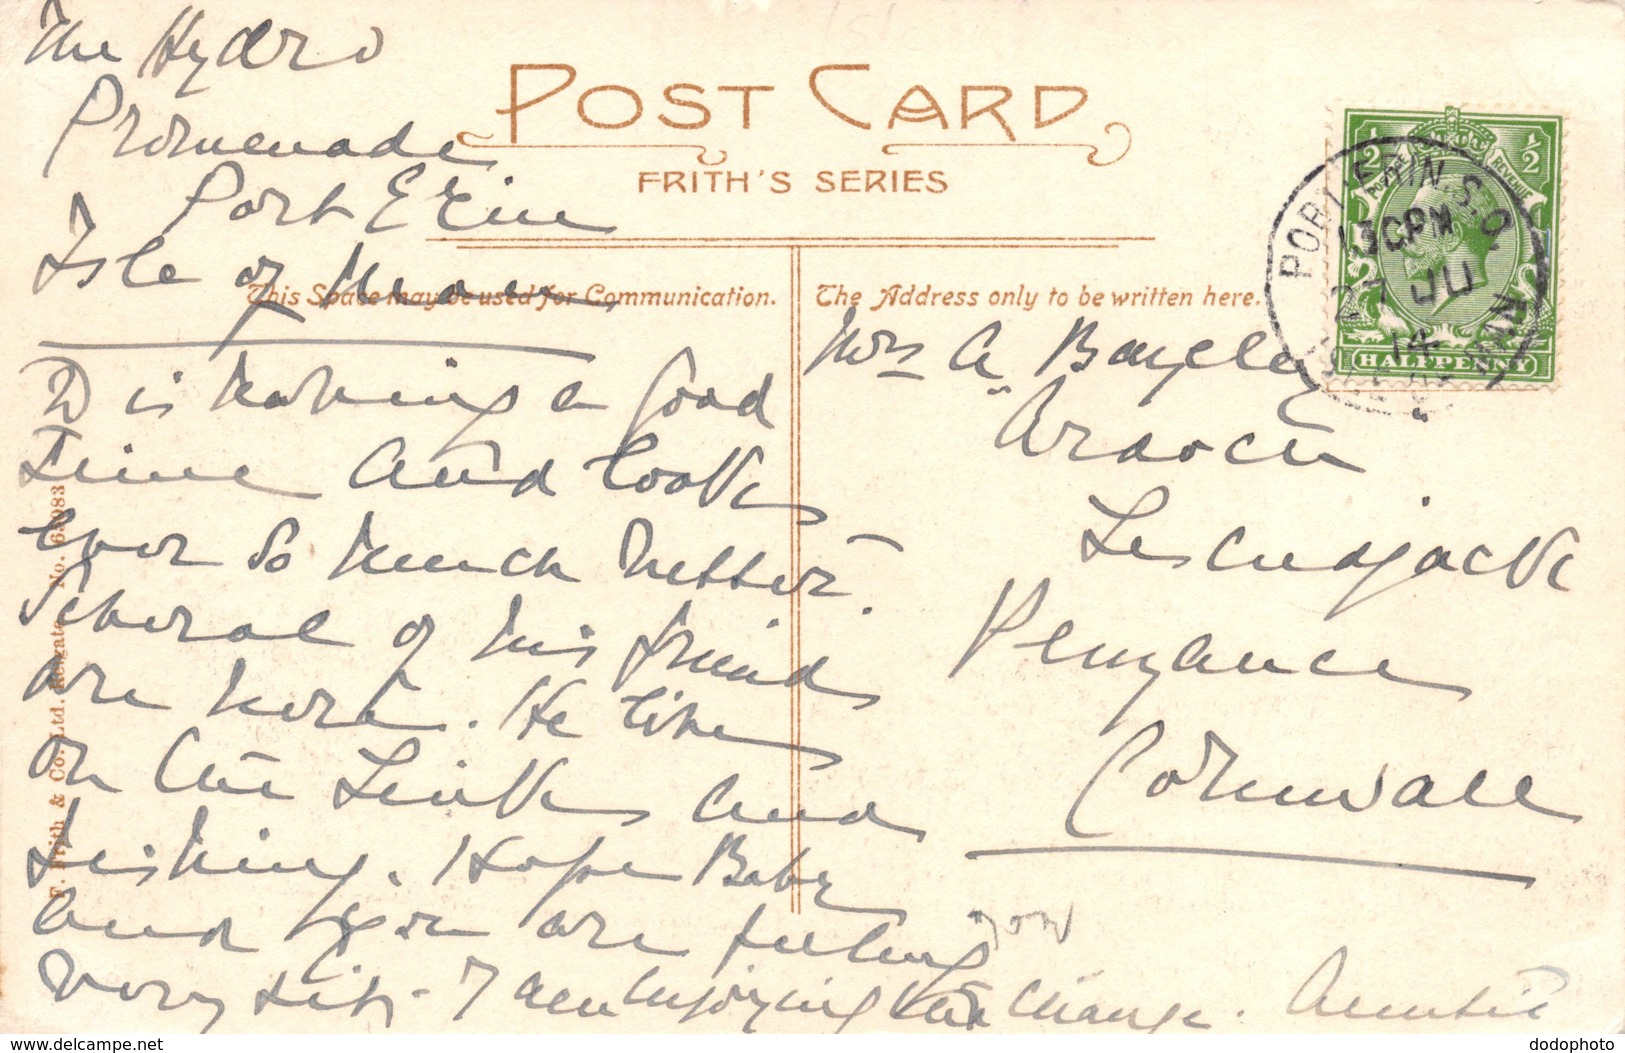 The Hydro
Promenade
Port Erin
Isle of Man
POST CARD
FRITH'S SERIES
This Space may be used for Communication.
The Address only to be written here.
D is having a good
time and looks
ever so much better.
Several of his friends
are here. He lives
on the Links and
fishing. Hope Baby
and you are feeling
very fit. I am enjoying the change. Auntie
Mrs A Bayley
"Ardoch"
Lescudjack
Penzance
Cornwall
½ ½
POSTAGE REVENUE
HALFPENNY
PORT ERIN S.O.
27 JU
14
F. Frith & Co. Ltd. Reigate
dodophoto